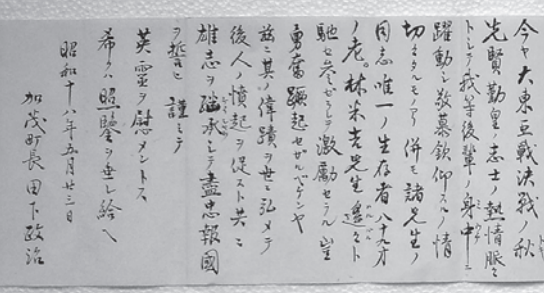 今ヤ大東亞戰決戰ノ秋
先賢勤皇ノ志士ノ熱情脈々
トシテ我等後輩ノ身中ニ
躍動シ敬慕欽仰スルノ情
切ナルモノアリ併モ諸先生ノ
同志唯一ノ生存者八十九才
ノ老林米吉先生遙々ト
馳セ參ゼラレ激勵セラル豈
勇奮蹶起セザルベケンヤ
茲ニ其ノ偉蹟ヲ世ニ弘メテ
後人ノ憤起ヲ促スト共ニ
雄志ヲ繼承シテ盡忠報國
ヲ誓ヒ謹ミテ
英靈ヲ慰メントス
希クハ照鑒ヲ垂レ給ヘ
昭和十八年五月廿三日
加茂町長田下政治